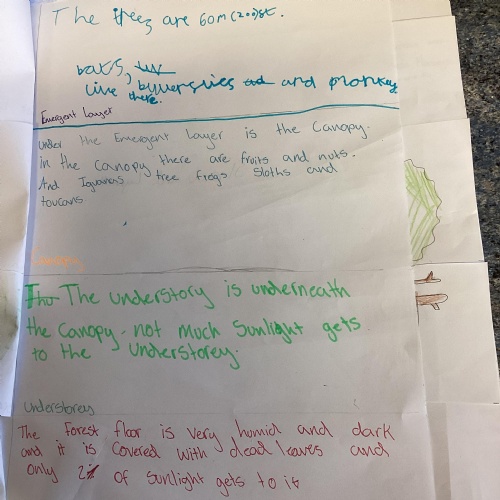 The trees are 60m (200)ft.
bats,
Live byuerslies and monkey
there.
Emergent Layer
under the Emergent Layer is the Canopy.
in the canopy there are fruits and nuts.
And Iguanas tree frogs sloths and
toucans
The understory is underneath
the canopy. not much Sunlight gets
to the understorey.
Understorey
The Forest floor is very humid and dark
and it is covered with dead leaves and
only 2% of sunlight gets to it